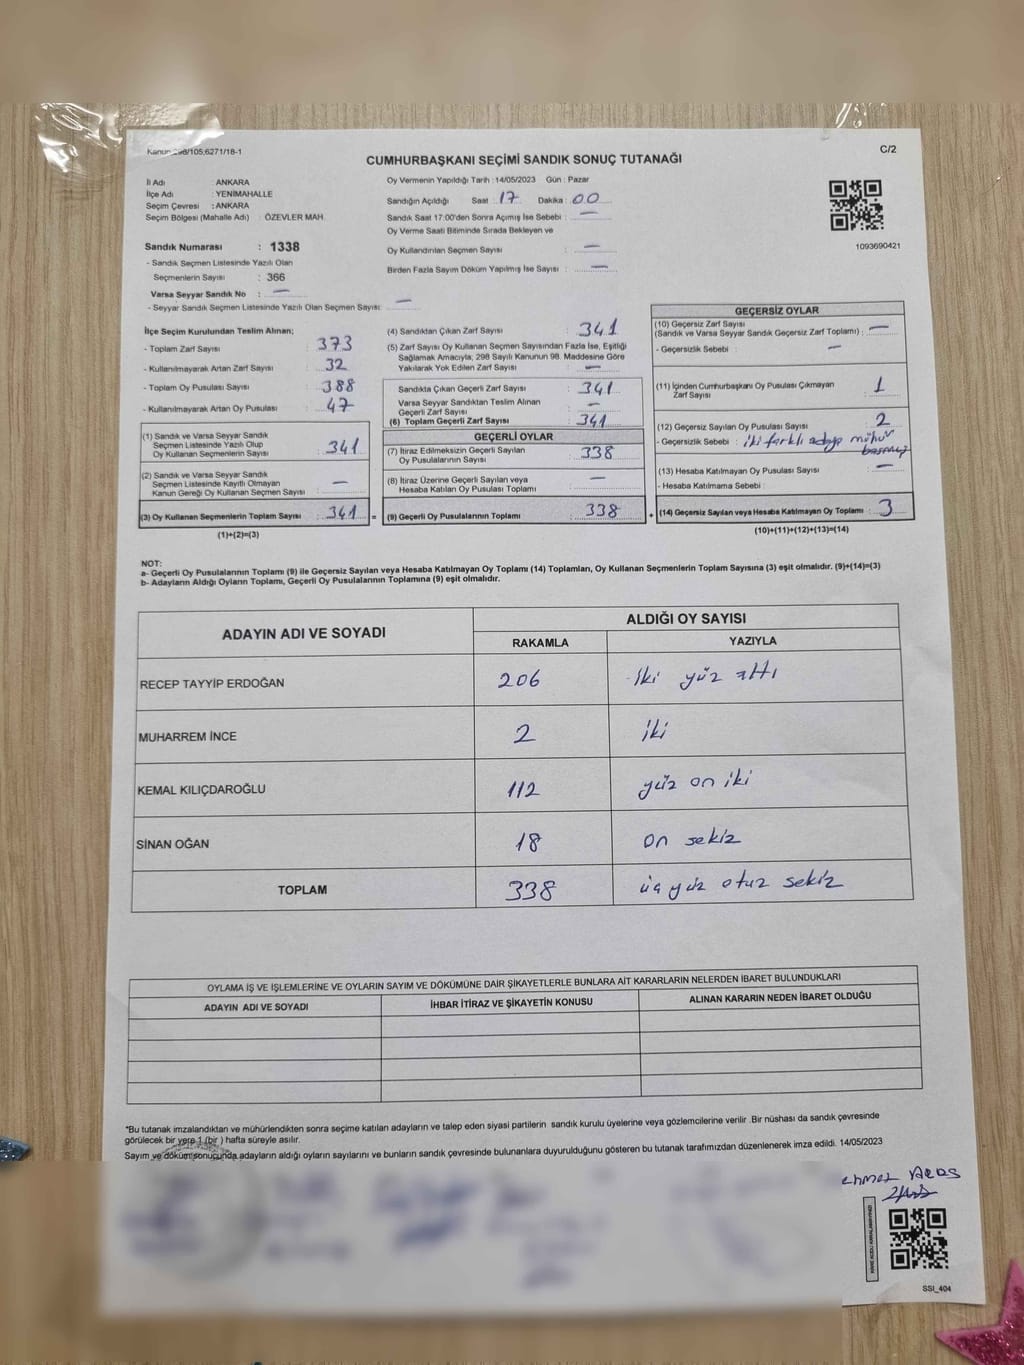 Kanun:298/105;6271/18-1
C/2
CUMHURBAŞKANI SEÇİMİ SANDIK SONUÇ TUTANAĞI
İl Adı : ANKARA
İlçe Adı : YENİMAHALLE
Seçim Çevresi : ANKARA
Seçim Bölgesi (Mahalle Adı) : ÖZEVLER MAH.
Sandık Numarası : 1338
- Sandık Seçmen Listesinde Yazılı Olan
Seçmenlerin Sayısı : 366
Varsa Seyyar Sandık No : —
- Seyyar Sandık Seçmen Listesinde Yazılı Olan Seçmen Sayısı: —
Oy Vermenin Yapıldığı Tarih :14/05/2023 Gün : Pazar
Sandığın Açıldığı Saat : 17 Dakika : 00
Sandık Saat 17:00'den Sonra Açımış İse Sebebi : —
Oy Verme Saati Bitiminde Sırada Bekleyen ve
Oy Kullandırılan Seçmen Sayısı : —
Birden Fazla Sayım Döküm Yapılmış İse Sayısı : —
1093690421
İlçe Seçim Kurulundan Teslim Alınan;
- Toplam Zarf Sayısı : 373
- Kullanılmayarak Artan Zarf Sayısı : 32
- Toplam Oy Pusulası Sayısı : 388
- Kullanılmayarak Artan Oy Pusulası : 47
(1) Sandık ve Varsa Seyyar Sandık
Seçmen Listesinde Yazılı Olup
Oy Kullanan Seçmenlerin Sayısı : 341
(2) Sandık ve Varsa Seyyar Sandık
Seçmen Listesinde Kayıtlı Olmayan
Kanun Gereği Oy Kullanan Seçmen Sayısı : —
(3) Oy Kullanan Seçmenlerin Toplam Sayısı : 341 =
(1)+(2)=(3)
(4) Sandıktan Çıkan Zarf Sayısı : 341
(5) Zarf Sayısı Oy Kullanan Seçmen Sayısından Fazla İse, Eşitliği
Sağlamak Amacıyla; 298 Sayılı Kanunun 98. Maddesine Göre
Yakılarak Yok Edilen Zarf Sayısı : —
Sandıkta Çıkan Geçerli Zarf Sayısı : 341
Varsa Seyyar Sandıktan Teslim Alınan
Geçerli Zarf Sayısı : —
(6) Toplam Geçerli Zarf Sayısı : 341
GEÇERLİ OYLAR
(7) İtiraz Edilmeksizin Geçerli Sayılan
Oy Pusulalarının Sayısı : 338
(8) İtiraz Üzerine Geçerli Sayılan veya
Hesaba Katılan Oy Pusulası Toplamı : —
(9) Geçerli Oy Pusulalarının Toplamı : 338 +
GEÇERSİZ OYLAR
(10) Geçersiz Zarf Sayısı
(Sandık ve Varsa Seyyar Sandık Geçersiz Zarf Toplamı) : —
- Geçersizlik Sebebi : —
(11) İçinden Cumhurbaşkanı Oy Pusulası Çıkmayan
Zarf Sayısı : 1
(12) Geçersiz Sayılan Oy Pusulası Sayısı : 2
- Geçersizlik Sebebi : iki farklı adaya mühür
basmış
(13) Hesaba Katılmayan Oy Pusulası Sayısı : —
- Hesaba Katılmama Sebebi :
(14) Geçersiz Sayılan veya Hesaba Katılmayan Oy Toplamı : 3
(10)+(11)+(12)+(13)=(14)
NOT:
a- Geçerli Oy Pusulalarının Toplamı (9) ile Geçersiz Sayılan veya Hesaba Katılmayan Oy Toplamı (14) Toplamları, Oy Kullanan Seçmenlerin Toplam Sayısına (3) eşit olmalıdır. (9)+(14)=(3)
b- Adayların Aldığı Oyların Toplamı, Geçerli Oy Pusulalarının Toplamına (9) eşit olmalıdır.
ADAYIN ADI VE SOYADI
ALDIĞI OY SAYISI
RAKAMLA YAZIYLA
RECEP TAYYİP ERDOĞAN 206 iki yüz altı
MUHARREM İNCE 2 iki
KEMAL KILIÇDAROĞLU 112 yüz on iki
SİNAN OĞAN 18 on sekiz
TOPLAM 338 üç yüz otuz sekiz
OYLAMA İŞ VE İŞLEMLERİNE VE OYLARIN SAYIM VE DÖKÜMÜNE DAİR ŞİKAYETLERLE BUNLARA AİT KARARLARIN NELERDEN İBARET BULUNDUKLARI
ADAYIN ADI VE SOYADI İHBAR İTİRAZ VE ŞİKAYETİN KONUSU ALINAN KARARIN NEDEN İBARET OLDUĞU
*Bu tutanak imzalandıktan ve mühürlendikten sonra seçime katılan adayların ve talep eden siyasi partilerin sandık kurulu üyelerine veya gözlemcilerine verilir .Bir nüshası da sandık çevresinde
görülecek bir yere 1 (bir ) hafta süreyle asılır.
Sayım ve döküm sonucunda adayların aldığı oyların sayılarını ve bunların sandık çevresinde bulunanlara duyurulduğunu gösteren bu tutanak tarafımızdan düzenlenerek imza edildi. 14/05/2023
SSI_404